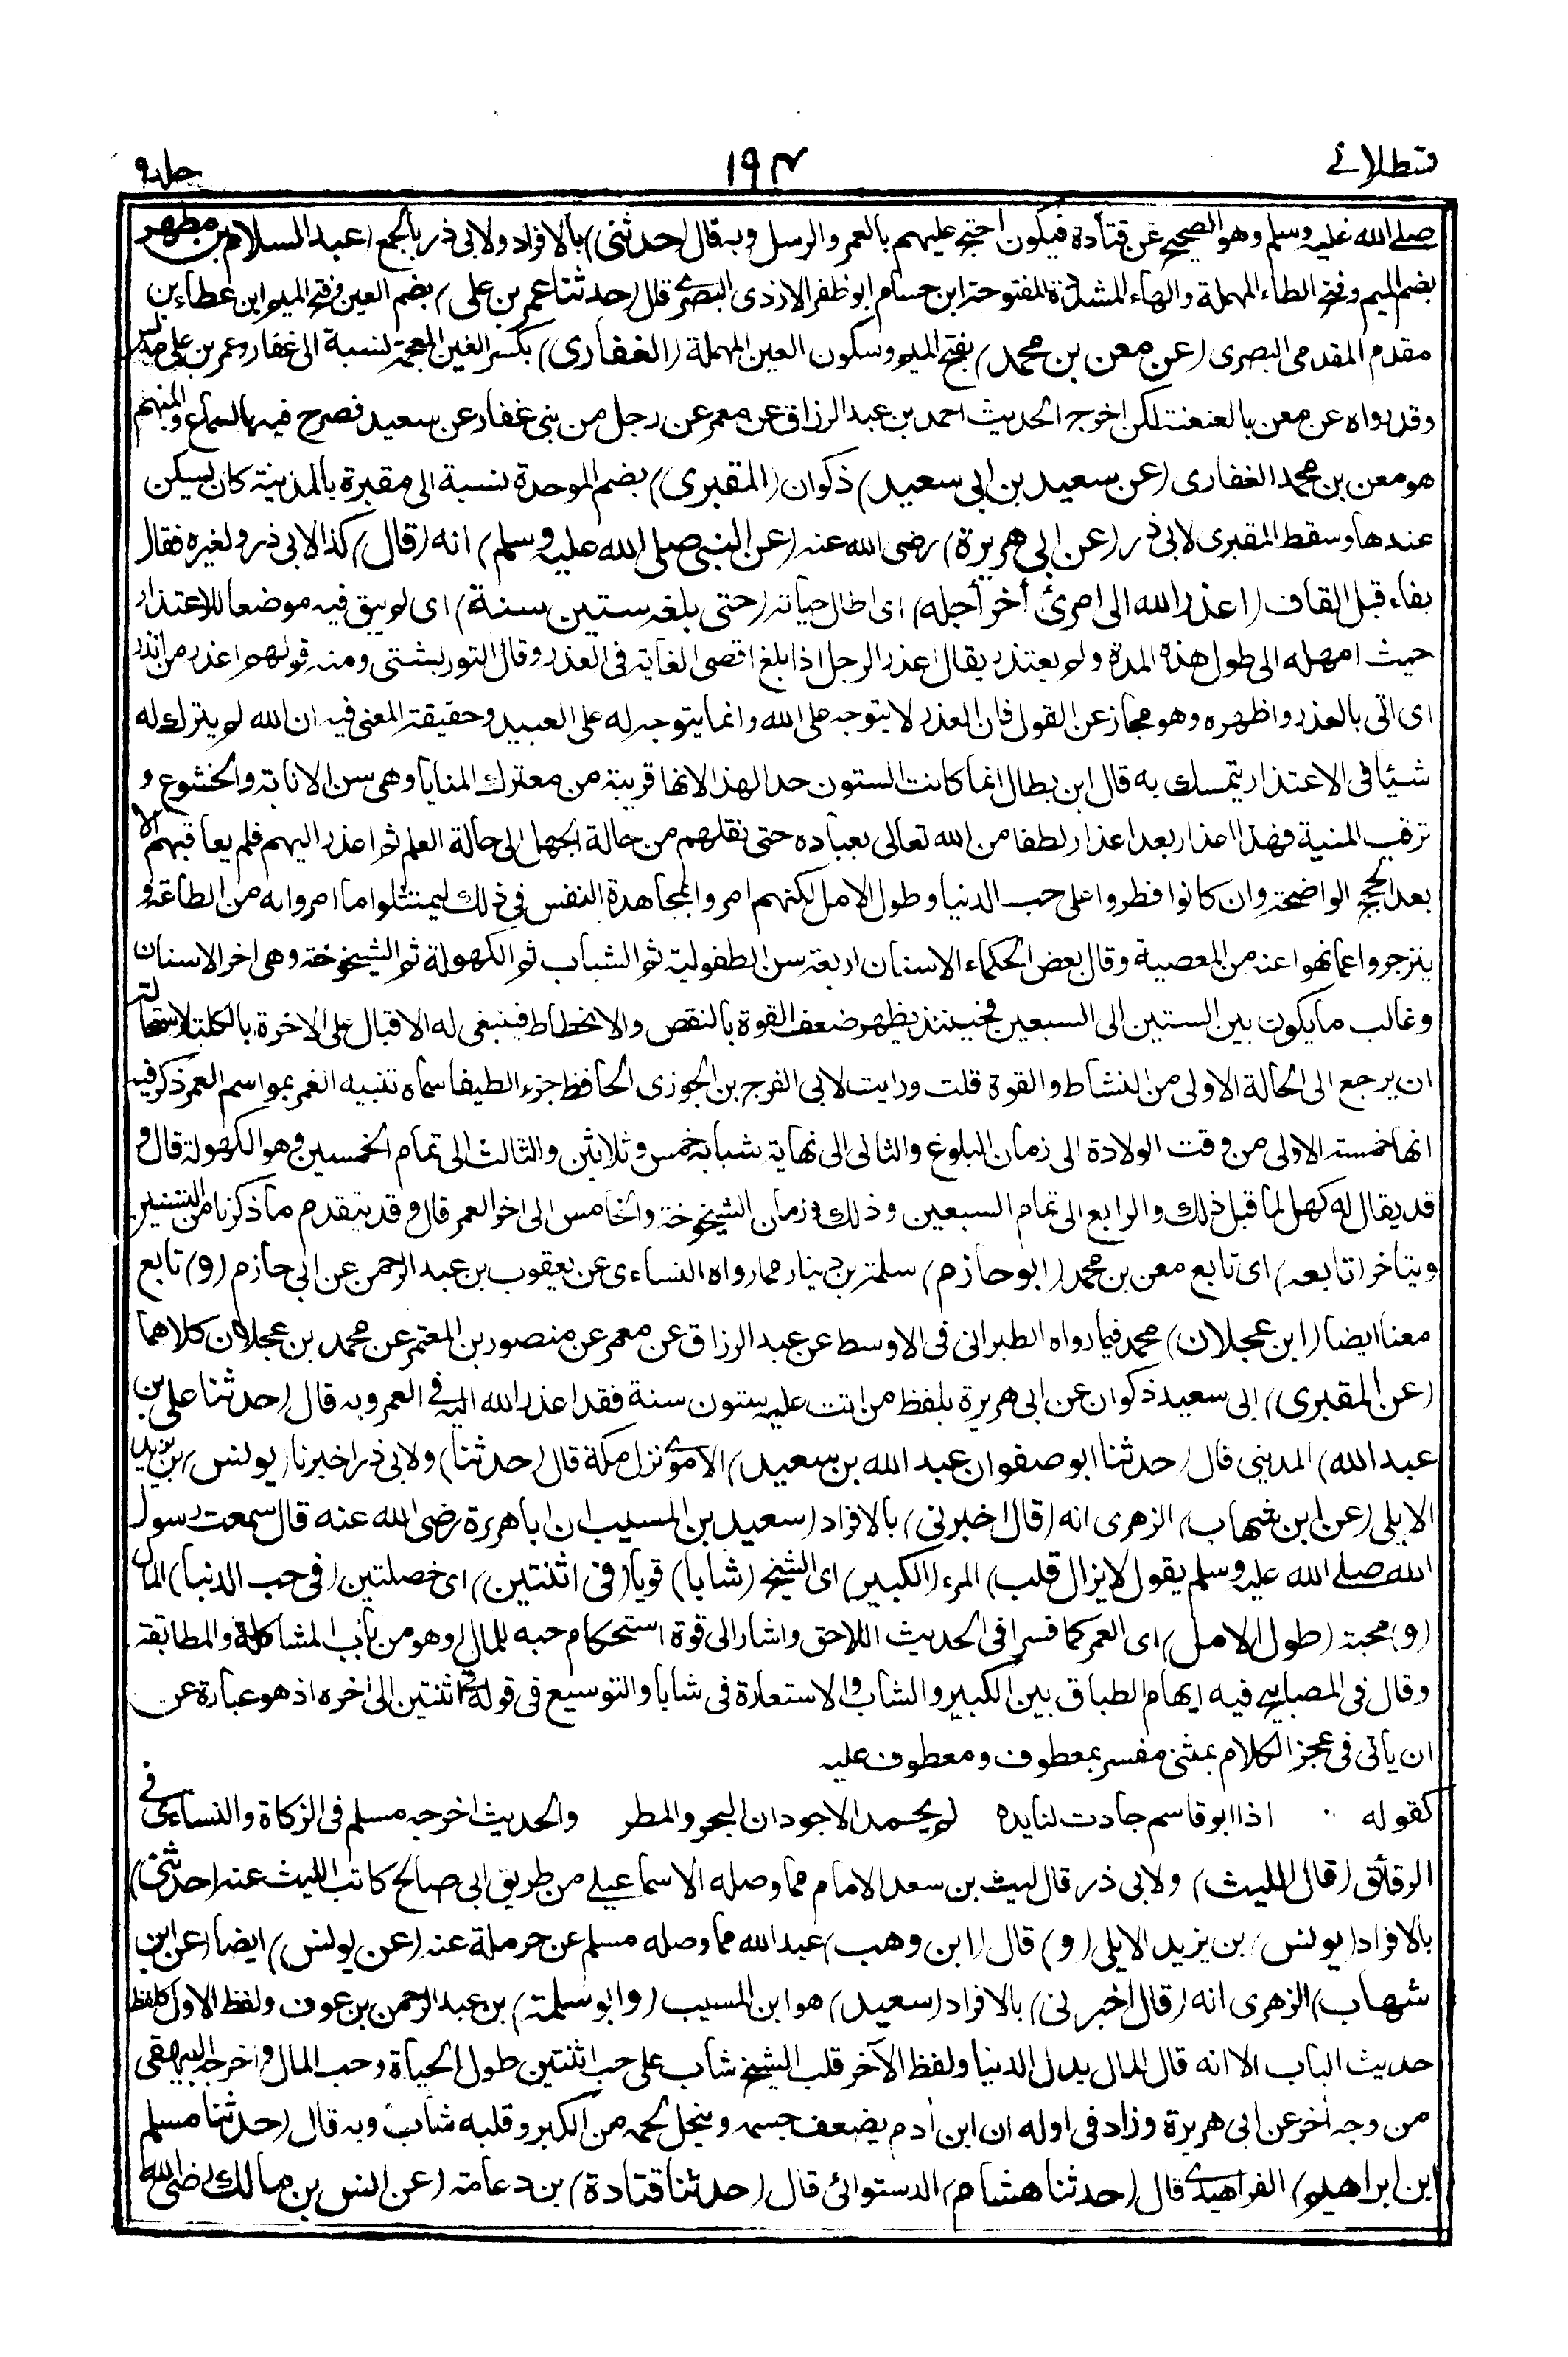 قسطلانے
١٩٣
جلد٩
صلے الله عليه وسلم وهو الصحيح عن قتادة فيكون احتج عليهم بالعمر والرسل وبه قال (حدثنى) بالافراد ولابى ذر بالجمع (عبد السلام بن مطهر
بضم الميم وفتح الطاء المهملة والهاء المشددة المفتوحة ابن حسام ابو ظفر الازدى البصرى قال (حدثنا عمر بن على) بضم العين وفتح الميم ابن عطاء بن
مقدم المقدمى البصرى (عن معن بن محمد) بفتح الميم وسكون العين المهملة (الغفارى) بكسر الغين المعجمة نسبة الى غفار وعمر بن على مدلس
وقد رواه عن معن بالعنعنة لكن اخرج الحديث احمد بن عبد الرزاق عن معمر عن رجل من بنى غفار عن سعيد فصرح فيها بالسماع والمبهم
هو معن بن محمد الغفارى (عن سعيد بن ابى سعيد) ذكوان (المقبرى) بضم الموحدة نسبة الى مقبرة بالمدينة كان يسكن
عندها وسقط المقبرى لابى ذر (عن ابى هريرة) رضى الله عنه (عن النبى صلى الله عليه وسلم) انه (قال) كذا لابى ذر ولغيره فقال
بفاء قبل القاف (اعذر الله الى امرئ أخر أجله) اى اطال حياته (حتى بلغه ستين سنة) اى لم يبق فيه موضعا للاعتذار
حيث امهله الى طول هذه المدة ولم يعتذر يقال اعذر الرجل اذا بلغ اقصى الغاية فى العذر وقال التوربشتى ومنه قولهم اعذر من انذر
اى اتى بالعذر واظهره وهو مجاز عن القول فان العذر لا يتوجه على الله وانما يتوجه له على العبيد وحقيقة المعنى فيه ان الله لم يترك له
شيئا فى الاعتذار يتمسك به قال ابن بطال انما كانت الستون حدا لهذا لانها قريبة من معترك المنايا وهى سن الانابة والخشوع و
ترقب المنية فهذا اعذار بعد اعذار لطفا من الله تعالى بعباده حتى نقلهم من حالة الجهل الى حالة العلم ثم اعذر اليهم فلم يعاقبهم الا
بعد الحجج الواضحة وان كانوا فطروا على حب الدنيا وطول الامل لكنهم امروا بمجاهدة النفس فى ذلك ليمتثلوا ما امروا به من الطاعة و
ينزجروا عما نهوا عنه من المعصية وقال بعض الحكماء الاسنان اربعة سن الطفولية ثم الشباب ثم الكهولة ثم الشيخوخة وهى اخر الاسنان
وغالب ما يكون بين الستين الى السبعين فحينئذ يظهر ضعف القوة بالنقص والانحطاط فينبغى له الاقبال على الاخرة بالكلية لاستحالة
ان يرجع الى الحالة الاولى من النشاط والقوة قلت ورايت لابى الفرج بن الجوزى الحافظ جزء الطيفا سماه تنبيه الغمر بمواسم العمر ذكر فيه
انها خمسة الاولى من وقت الولادة الى زمان البلوغ والثانى الى نهاية شبابه خمس وثلاثين والثالث الى تمام الخمسين وهو الكهولة قال و
قد يقال له كهل لما قبل ذلك والرابع الى تمام السبعين وذلك زمان الشيخوخة والخامس الى اخر العمر قال وقد يتقدم ما ذكرنا من السنين
ويتأخر (تابعه) اى تابع معن بن محمد (ابو حازم) سلمة بن دينار مما رواه النساءى عن يعقوب بن عبد الرحمن عن ابى حازم (و) تابع
معنا ايضا (ابن عجلان) محمد فيما رواه الطبرانى فى الاوسط عن عبد الرزاق عن معمر عن منصور بن المعتمر عن محمد بن عجلان كلاهما
(عن المقبرى) ابى سعيد ذكوان عن ابى هريرة بلفظ من اتت عليه ستون سنة فقد اعذر الله اليه فى العمر وبه قال (حدثنا على بن
عبد الله) المدينى قال (حدثنا ابو صفوان عبد الله بن سعيد) الاموى نزل مكة قال (حدثنا) ولابى ذر اخبرنا (يونس) بن يزيد
الايلى (عن ابن شهاب) الزهرى انه (قال اخبرنى) بالافراد (سعيد بن المسيب ان ابا هريرة رضى الله عنه قال سمعت رسول
الله صلے الله عليه وسلم يقول لا يزال قلب) المرء (الكبير) اى الشيخ (شابا) قويا (فى اثنتين) اى خصلتين (فى حب الدنيا) المال
(و) محبة (طول الامل) اى العمر كما فسرا فى الحديث اللاحق واشار الى قوة استحكام حبه للمال (وهو من باب المشاكلة والمطابقة
وقال فى المصابيح فيه ايهام الطباق بين الكبير والشاب والاستعارة فى شابا والتوسيع فى قوله فى اثنتين الى اخره اذ هو عبارة عن
ان ياتى فى عجز الكلام بمثنى مفسر بمعطوف ومعطوف عليه
كقوله ∴ اذا ابو قاسم جادت لنا يده لم يحمد الاجودان البحر والمطر والحديث اخرجه مسلم فى الزكاة والنساءى فى
الرقائق (قال الليث) ولابى ذر قال ليث بن سعد الامام مما وصله الاسماعيلے من طريق ابى صالح كاتب الليث عنه (حدثنى)
بالافراد (يونس) بن يزيد الايلى (و) قال (ابن وهب) عبد الله مما وصله مسلم عن حرملة عنه (عن يونس) ايضا (عن ابن
شهاب) الزهرى انه (قال اخبرنى) بالافراد (سعيد) هو ابن المسيب (وابو سلمة) بن عبد الرحمن بن عوف ولفظ الاول كلفظ
حديث الباب الا انه قال المال بدل الدنيا ولفظ الآخر قلب الشيخ شاب على حب اثنتين طول الحياة وحب المال واخرجه البيهقى
من وجه اخر عن ابى هريرة وزاد فى اوله ان ابن أدم يضعف جسمه وينحل لحمه من الكبر وقلبه شاب وبه قال (حدثنا مسلم
ابن ابراهيم) الفراهيدى قال (حدثنا هشام) الدستوائى قال (حدثنا قتادة) بن دعامة (عن انس بن مالك رضى الله